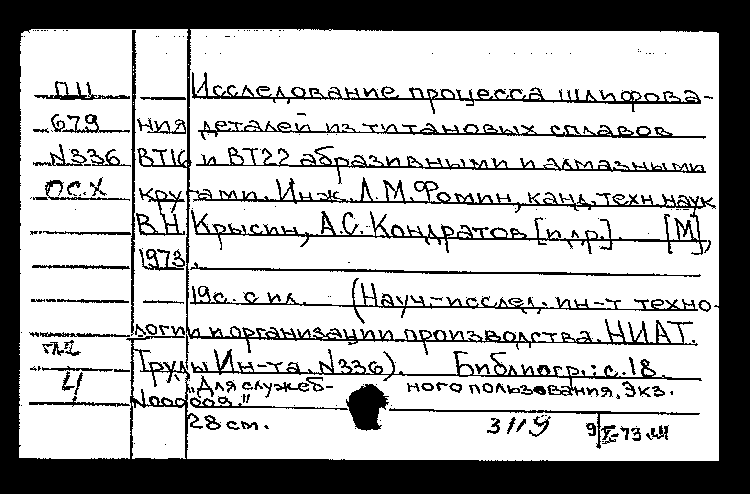 П11 Исследование процесса шлифова-
679 ния деталей из титановых сплавов
N336 ВТ16 и ВТ22 абразивными и алмазными
ОС.Х кругами. Инж. Л.М.Фомин, канд.техн.наук
В.Н.Крысин, А.С.Кондратов [и др.]. [М],
1973.
19с. с ил. (Науч.-исслед. ин-т техно-
логии и организации производства. НИАТ.
Труды Ин-та. N336). Библиогр.: с.18.
4 "Для служеб- ного пользования. Экз.
N000009."
28 см. 3119